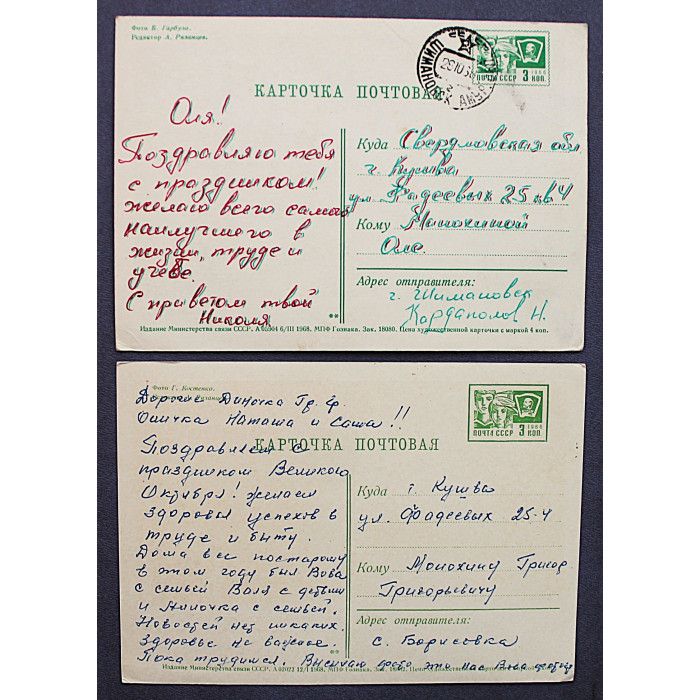 Фото Б. Гарбуза.
Редактор А. Рязанцев.
ШИМАНОВСК АМУР.
ПОЧТА СССР 3 КОП.
1966
КАРТОЧКА ПОЧТОВАЯ
Оля!
Поздравляю тебя
с праздником!
желаю всего самого
наилучшего в
жизни, труде и
учебе.
С приветом твой
Николя
Куда Свердловская обл
г. Кушва
ул Фадеевых 25 кв 4
Кому Монохиной
Оле.
Адрес отправителя:
г. Шимановск
Кардаполов Н.
Издание Министерства связи СССР. А 6/III 1968. МПФ Гознака. Зак. 18080. Цена художественной карточки с маркой 4 коп.
Фото Г. Костенко.
ПОЧТА СССР 3 КОП.
1966
КАРТОЧКА ПОЧТОВАЯ
Дорогие Диночка Гр. Гр.
Оличка Наташа и Саша!!
Поздравляем с
праздником Великого
Октября! желаем
здоровья успехов в
труде и быту.
Дома все постарому
в этом году был Вова
с семьей Валя с детьми
и Ниночка с семьей.
Новостей нет никаких.
Здоровье не важное.
Пока трудимся.
Куда г. Кушва
ул. Фадеевых 25-4
Кому Монохину Григор
Григорьевичу
Адрес отправителя:
с. Борисовка
Издание Министерства связи СССР. А 02022 12/I 1968. МПФ Гознака.